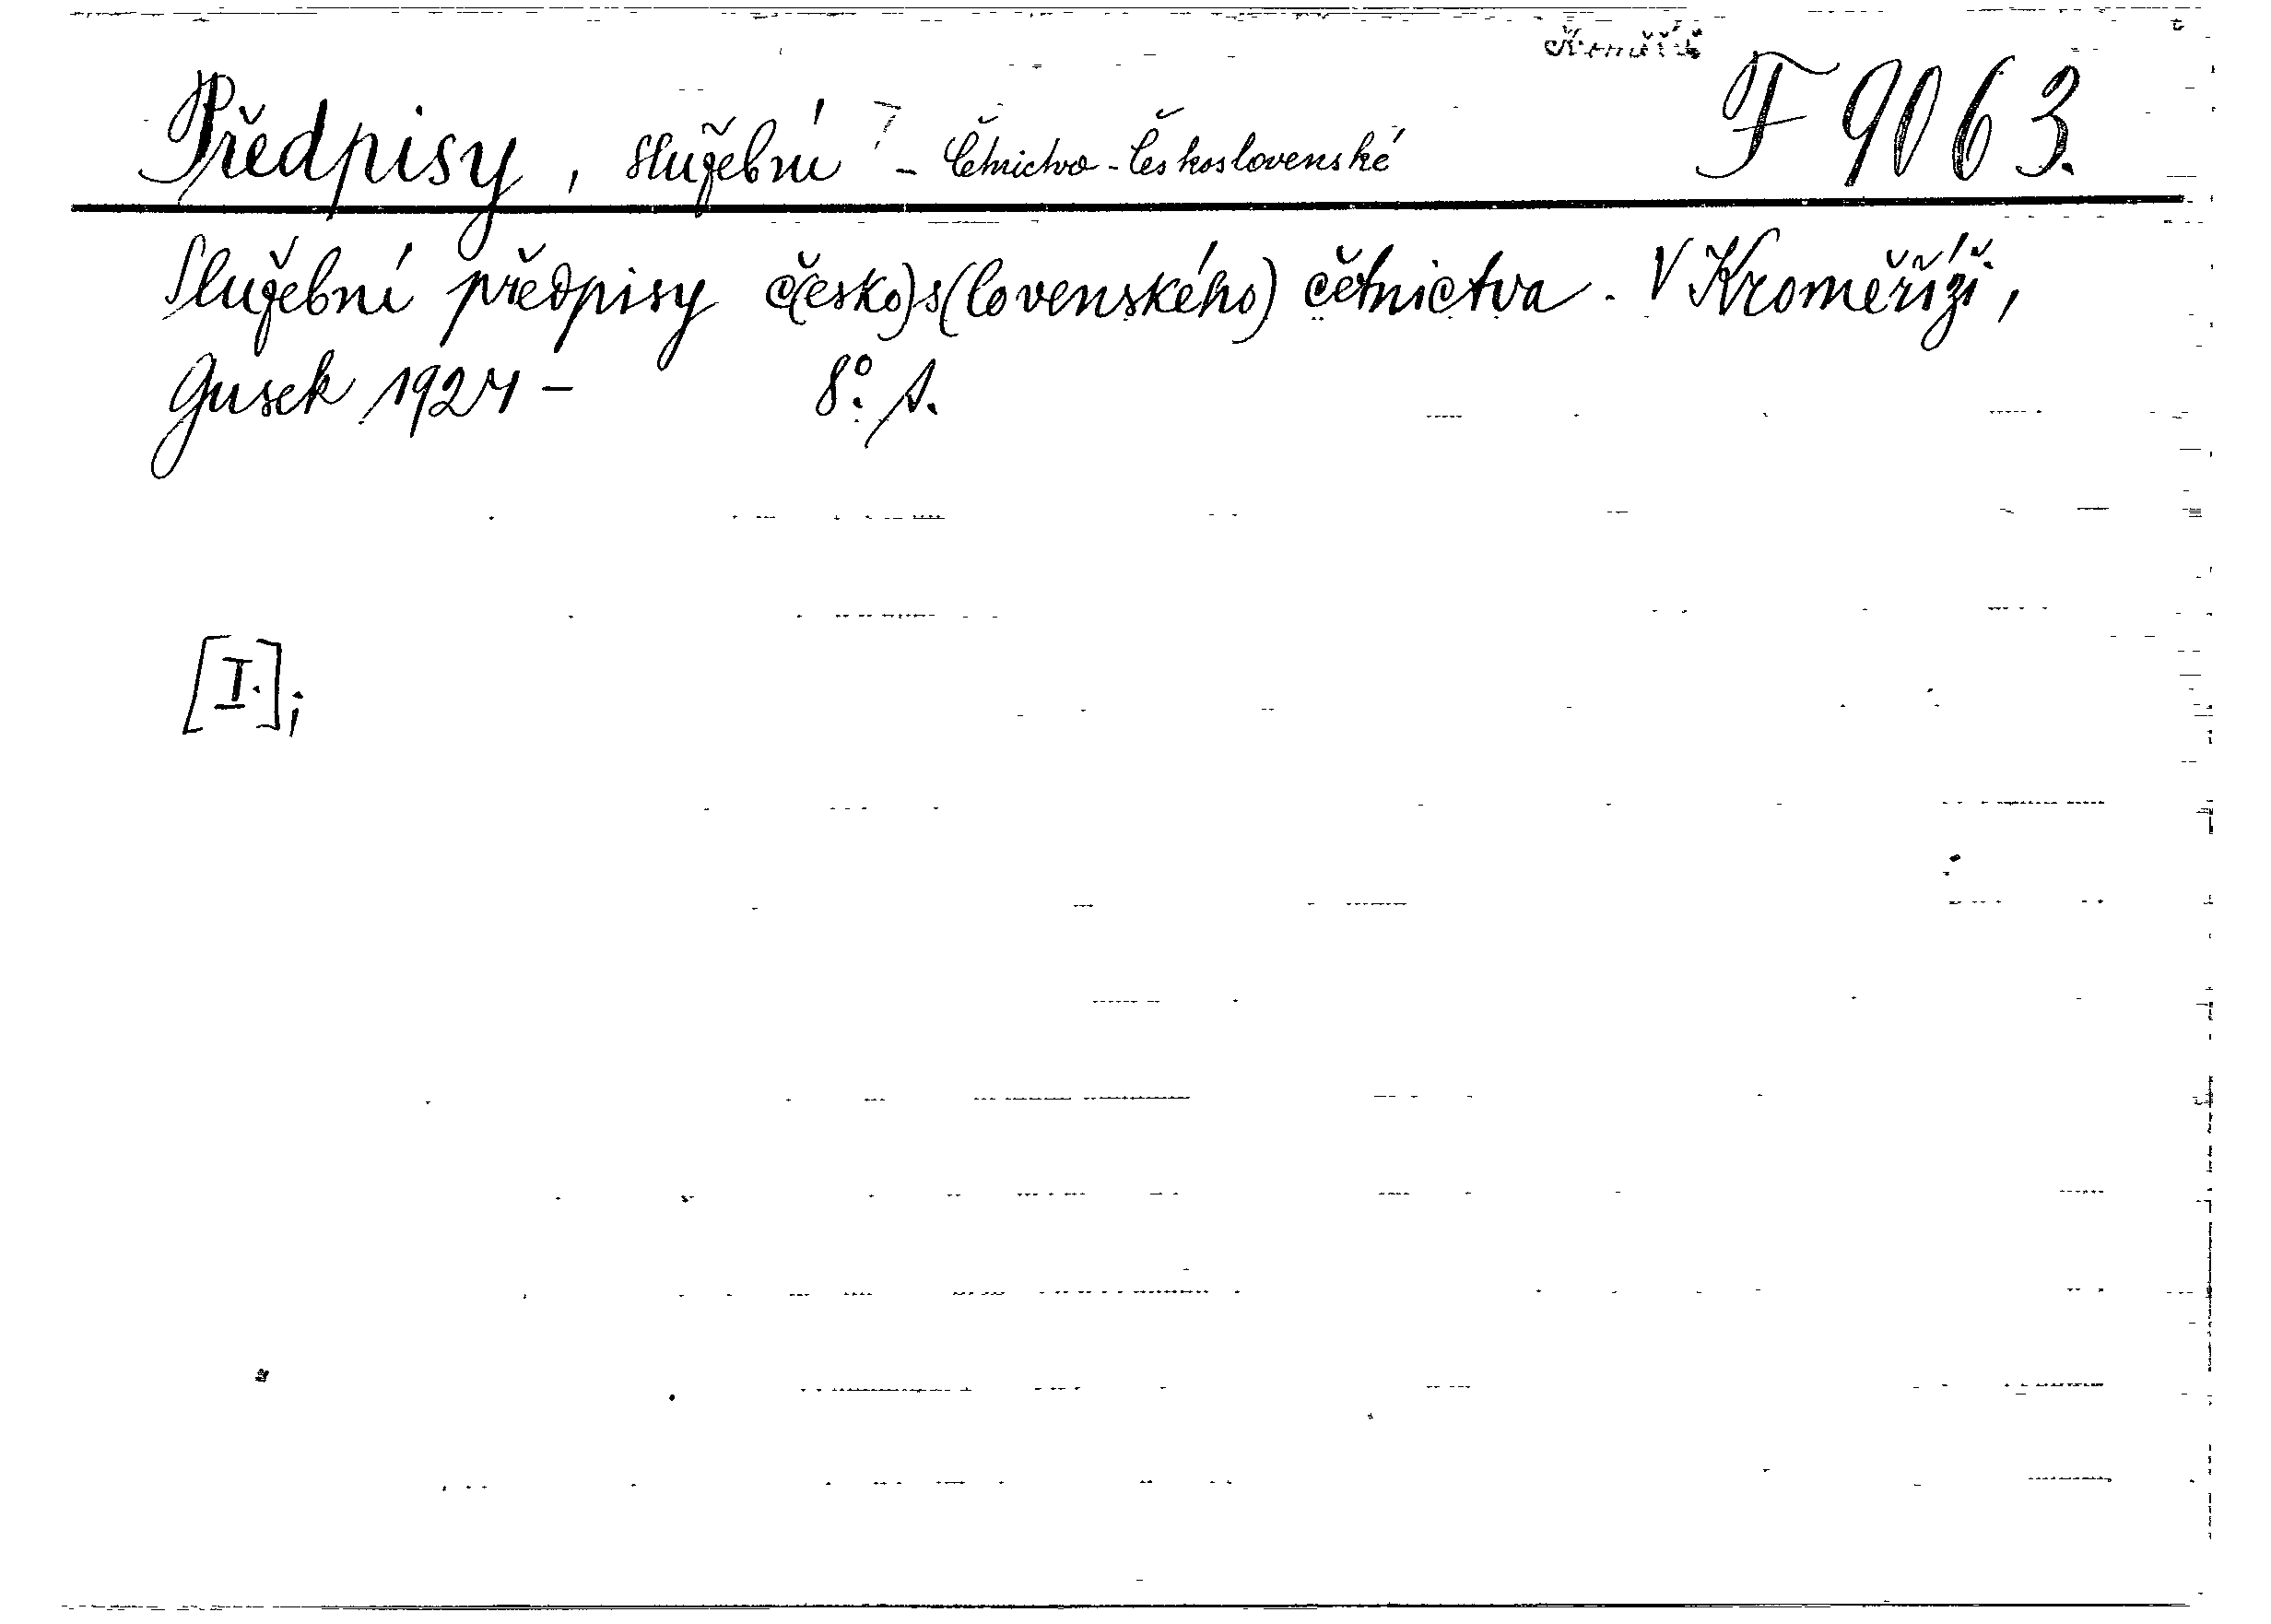 Předpisy, služební - četnictvo - Československé F 9063.
Služební předpisy č(esko)s(lovenského) četnictva. V Kroměříži,
Gusek 1924 - 8°. A.
[I.];